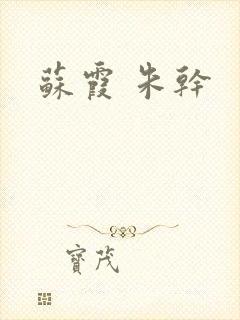 蘇霞 朱幹
寶茂